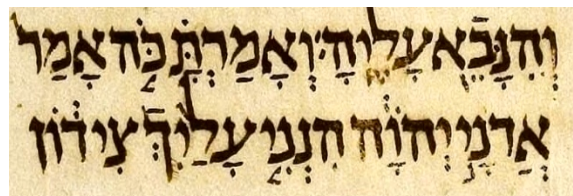 וְהִנָּבֵא עָלֶיהָ׃ וְאָמַרְתָּ כֹּה אָמַר
אֲדֹנָי יְהוִֹה הִנְנִי עָלַיִךְ צִידוֹן